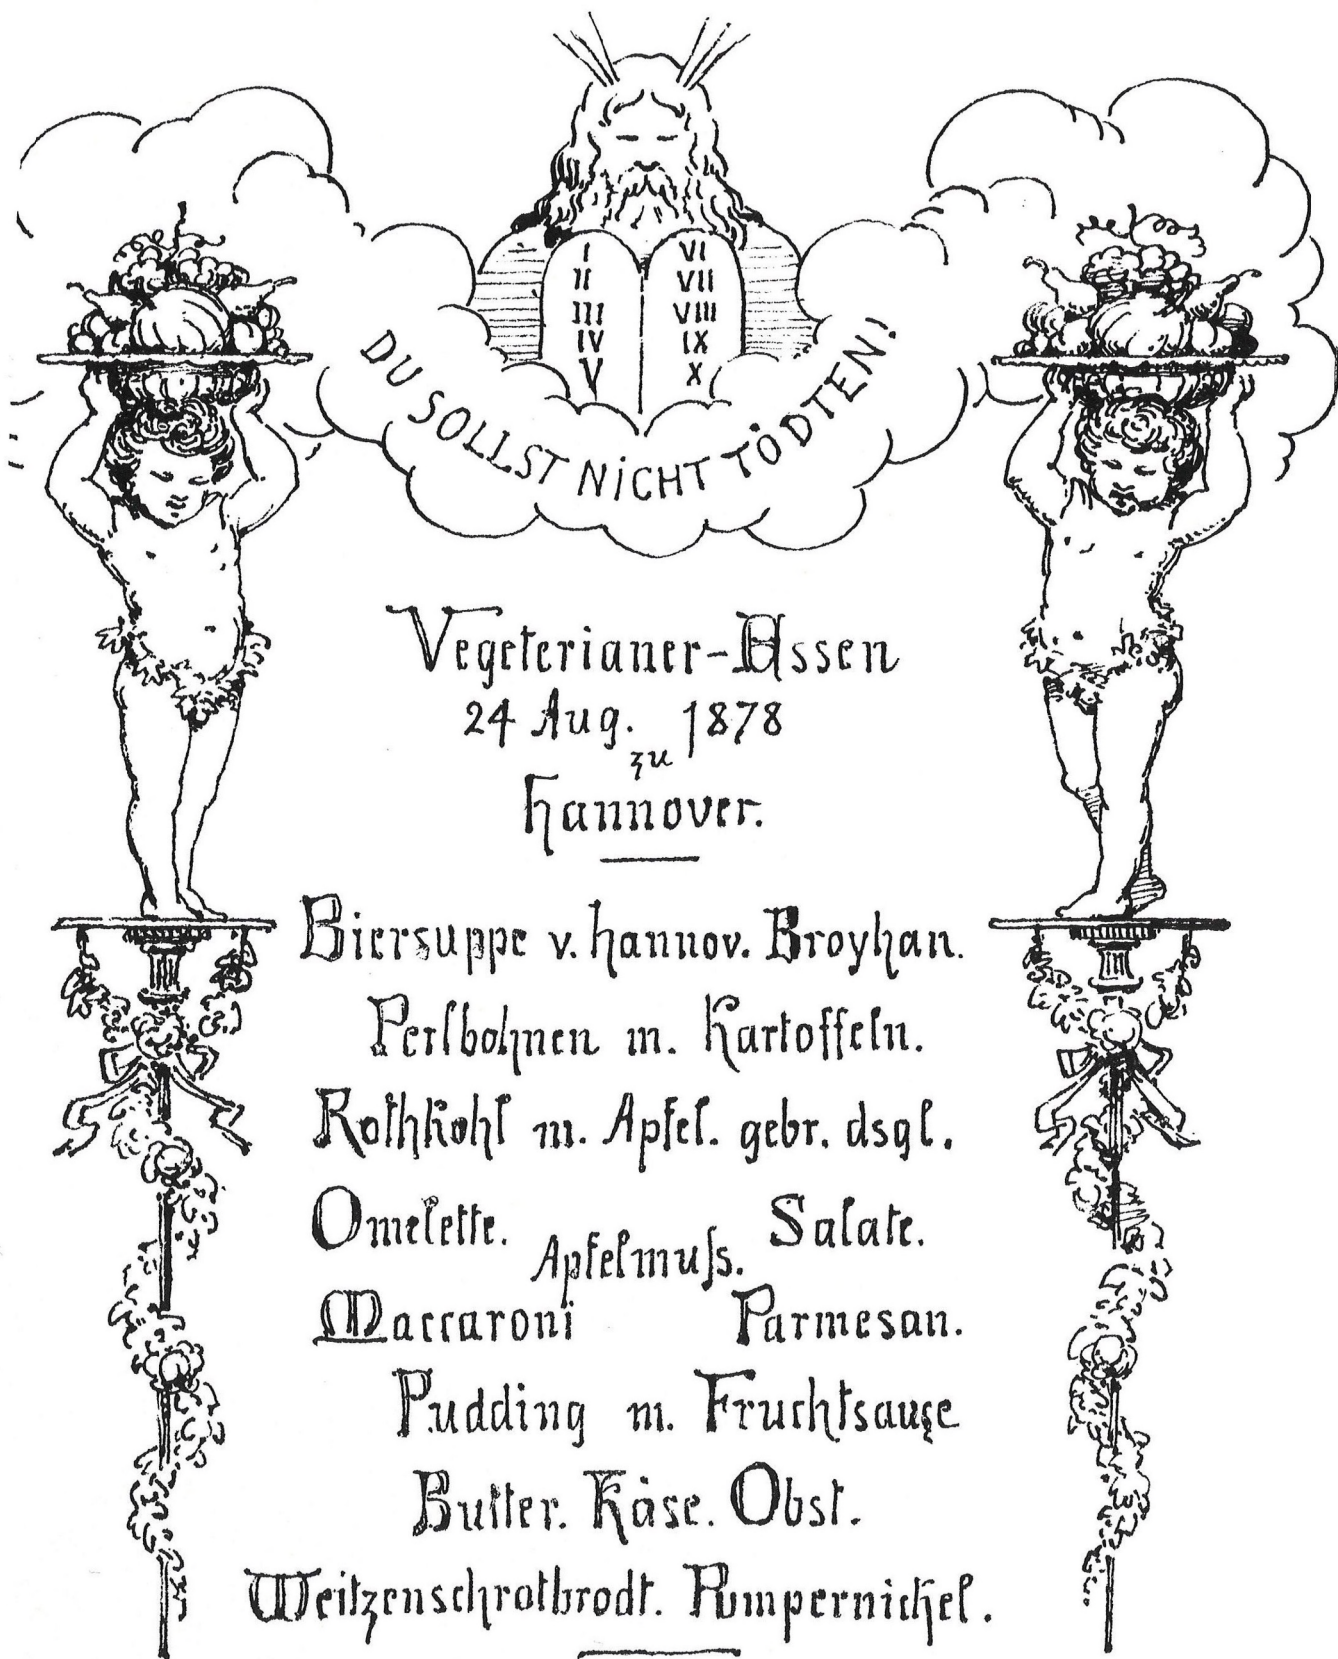 I VI
II VII
III VIII
IV IX
V X
DU SOLLST NiCHT TÖDTEN!
Vegeterianer-Assen
24 Aug. 1878
zu
Hannover.
Biersuppe v. Hannov. Broyhan.
Perlbohnen m. Kartoffeln.
Rothkohl m. Apfel. gebr. dsgl.
Omelette. Apfelmuſs. Salate.
Maccaroni Parmesan.
Pudding m. Fruchtsauçe
Butter. Käse. Obst.
Weitzenschrotbrodt. Pumpernickel.